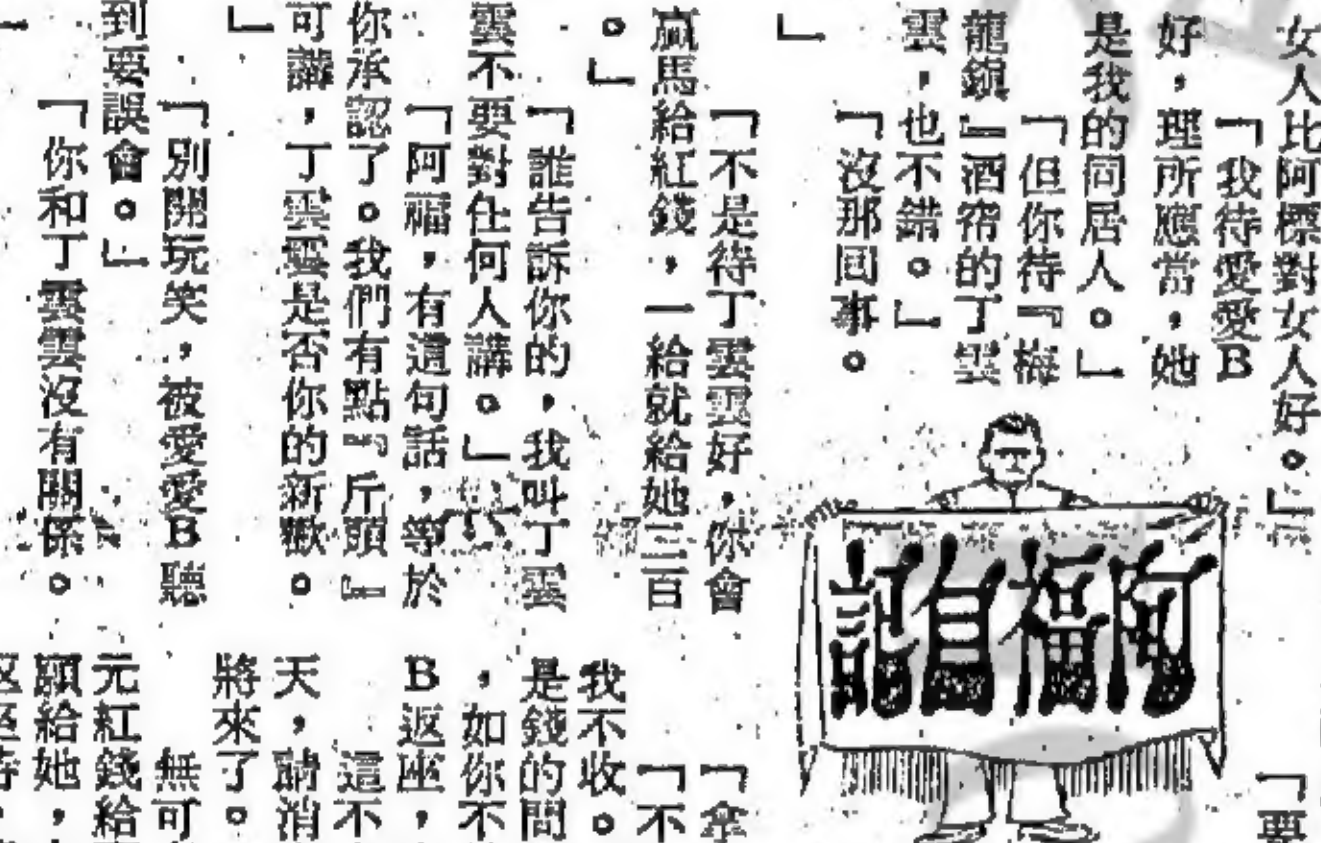 女人比阿標對女人好。」
「我待愛愛B
好，理所應當，她
是我的同居人。」
「但你待『梅
龍鎮』酒帘的丁雲
雲，也不錯。」
「沒那回事。
」
「不是待丁雲雲好，你會
贏馬給紅錢，一給就給她三百
。」
「誰告訴你的，我叫丁雲
雲不要對任何人講。」
「阿福，有這句話，等於
你承認了。我們有點『斤頭』
可講，丁雲雲是否你的新歡。
」
「別開玩笑，被愛愛B聽
到要誤會。」
「你和丁雲雲沒有關係。
」
阿福自記
「要
「拿
「不
我不收。
是錢的問
，如你不
B返座，
這不
天，請消
將來了。
無可
元紅錢給
願給她，